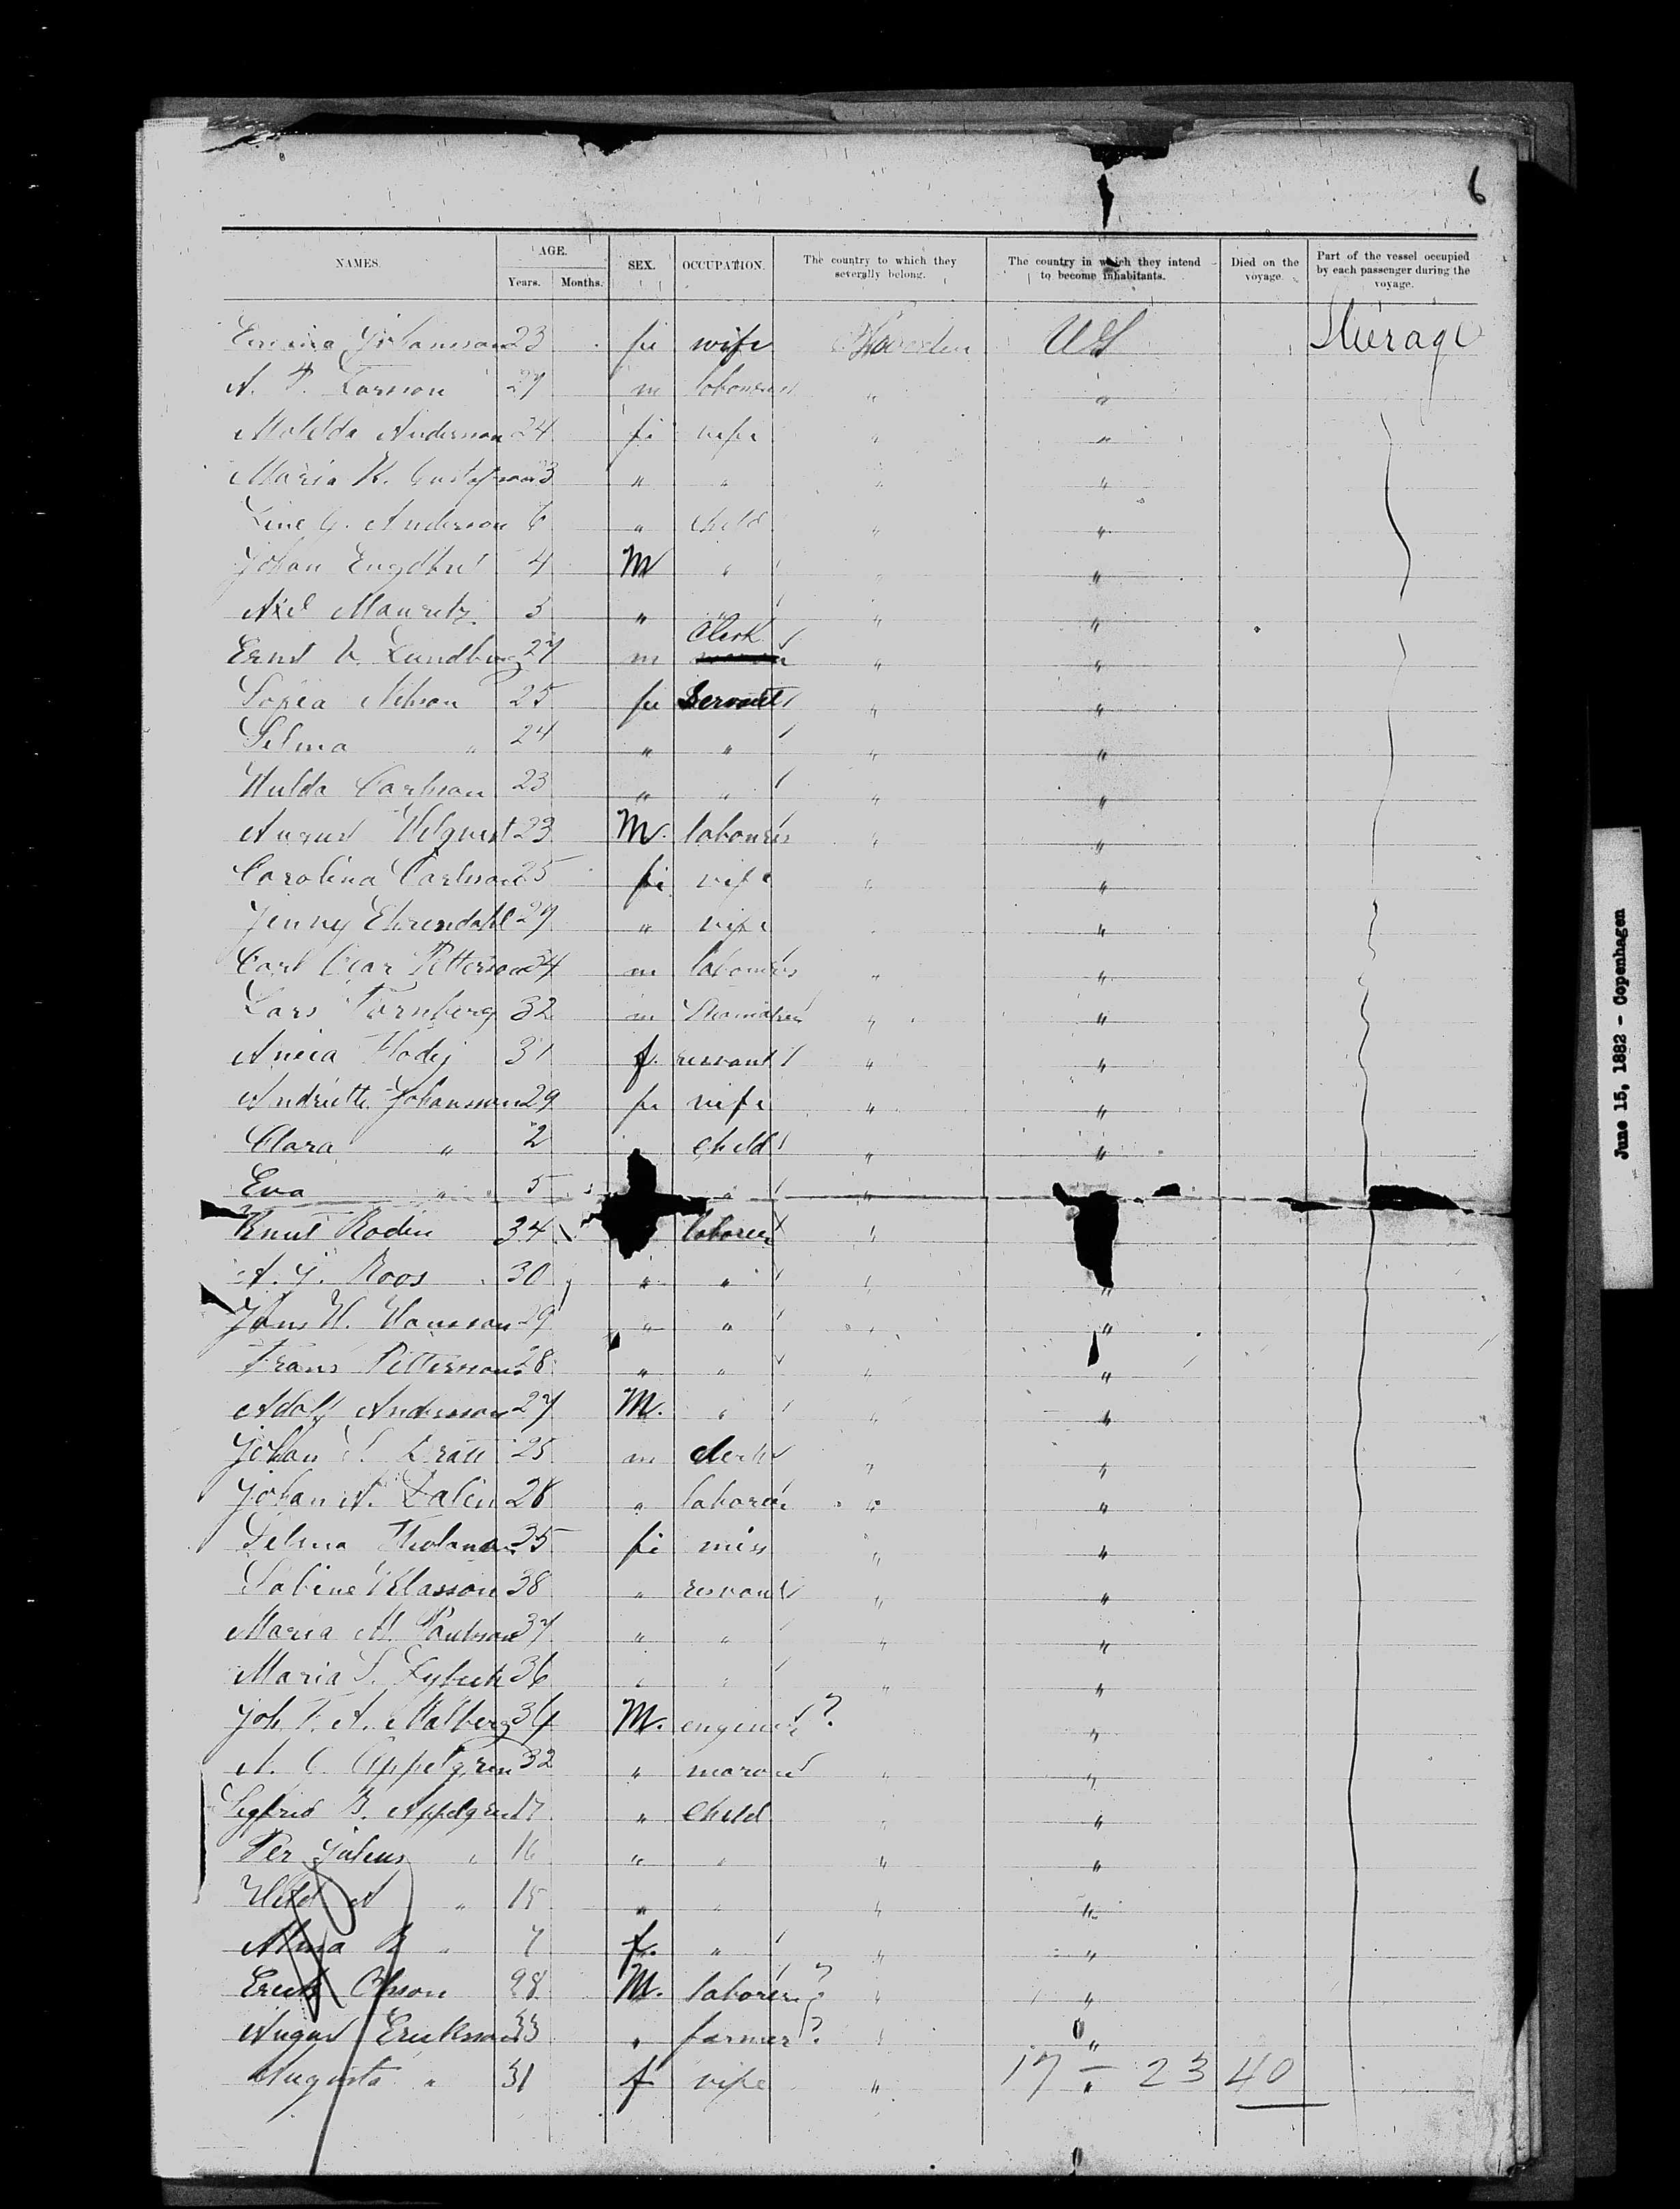 6
NAMES. AGE. Years. Months. SEX. OCCUPATION. The country to which they severally belong. The country in which they intend to become inhabitants. Died on the voyage. Part of the vessel occupied by each passenger during the voyage.
Johansson 23 fe wife Sweden US Steerage
A. P. Larsson 27 m labourer " "
Matilda Anderson 24 fe wife " "
Maria K. Gustafson 3 " " " "
Line G. Anderson 6 " child " "
Johan 4 M " " "
Axel Mauritz 3 " " " "
Ernst W. Lundberg 27 m Clerk " "
Nilsson 25 fe Servant " "
Selma " 24 " " " "
Hulda Carlsson 23 " " " "
August 23 M. labourer " "
Carolina Carlsson 25 fe wife " "
Jenny Ehrendahl 29 " wife "
Carl Petterson 34 m labourer " "
Lars Fornberg 32 m " "
31 f. servant " "
Johansson 29 fe wife " "
Clara " 2 child " "
Eva " 5 " "
Knut Rodin 34 laborer "
A. G. Roos 30 " " " "
Jöns H. Hansson 29 " " " "
Frans Petterson 28 " " " "
Adolf Andersson 27 M. " " "
Johan S. 25 m clerk " "
Johan A. Dalin 28 " laborer " "
Selma 35 fe miss " "
Klasson 38 " servant " "
Maria M. Paulson 37 " " " "
Maria S. 36 " " " "
Joh. F. A. Malberg 34 M. engineer ? "
A. C. Appelgren 32 " " "
B. Appelgren 17 " child " "
Per Julius " 16 " " " "
A " 15 " " " "
Alma " 7 f. " " "
Olsson 28 M. laborer ? " "
August Eriksson 33 " farmer ? " "
Augusta " 31 f wife " "
17 – 23 40
June 15, 1882 - Copenhagen